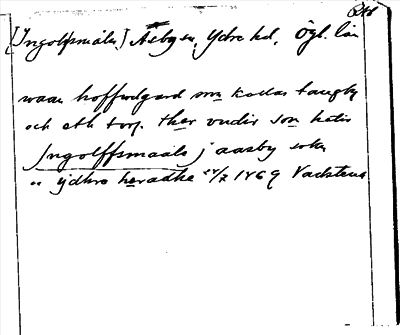 [Ingolfsmåla,] Asby sn, Ydre hd, Ögl. län
waan hoffwdgard som kallas taugby
och eth torp. ther vndir som hetir
Ingolffsmaala j aasby sokn
ydhre hæradhe 22/7 1469 Vadstena